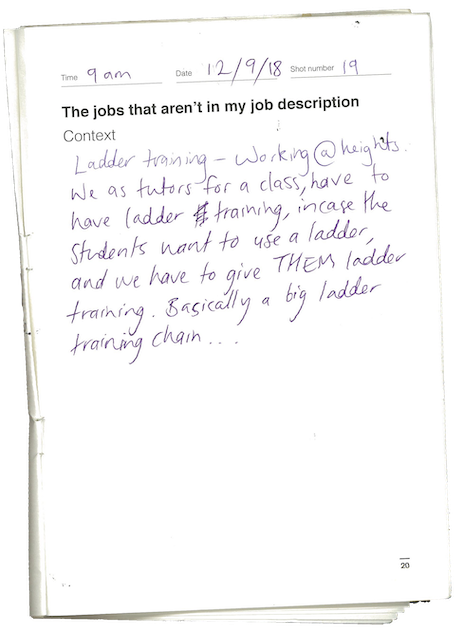 Time 9 am Date 12/9/18 Shot number 19
The jobs that aren't in my job description
Context
Ladder training - Working @ heights.
We as tutors for a class, have to
have ladder training, incase the
students want to use a ladder,
and we have to give THEM ladder
training. Basically a big ladder
training chain...
20